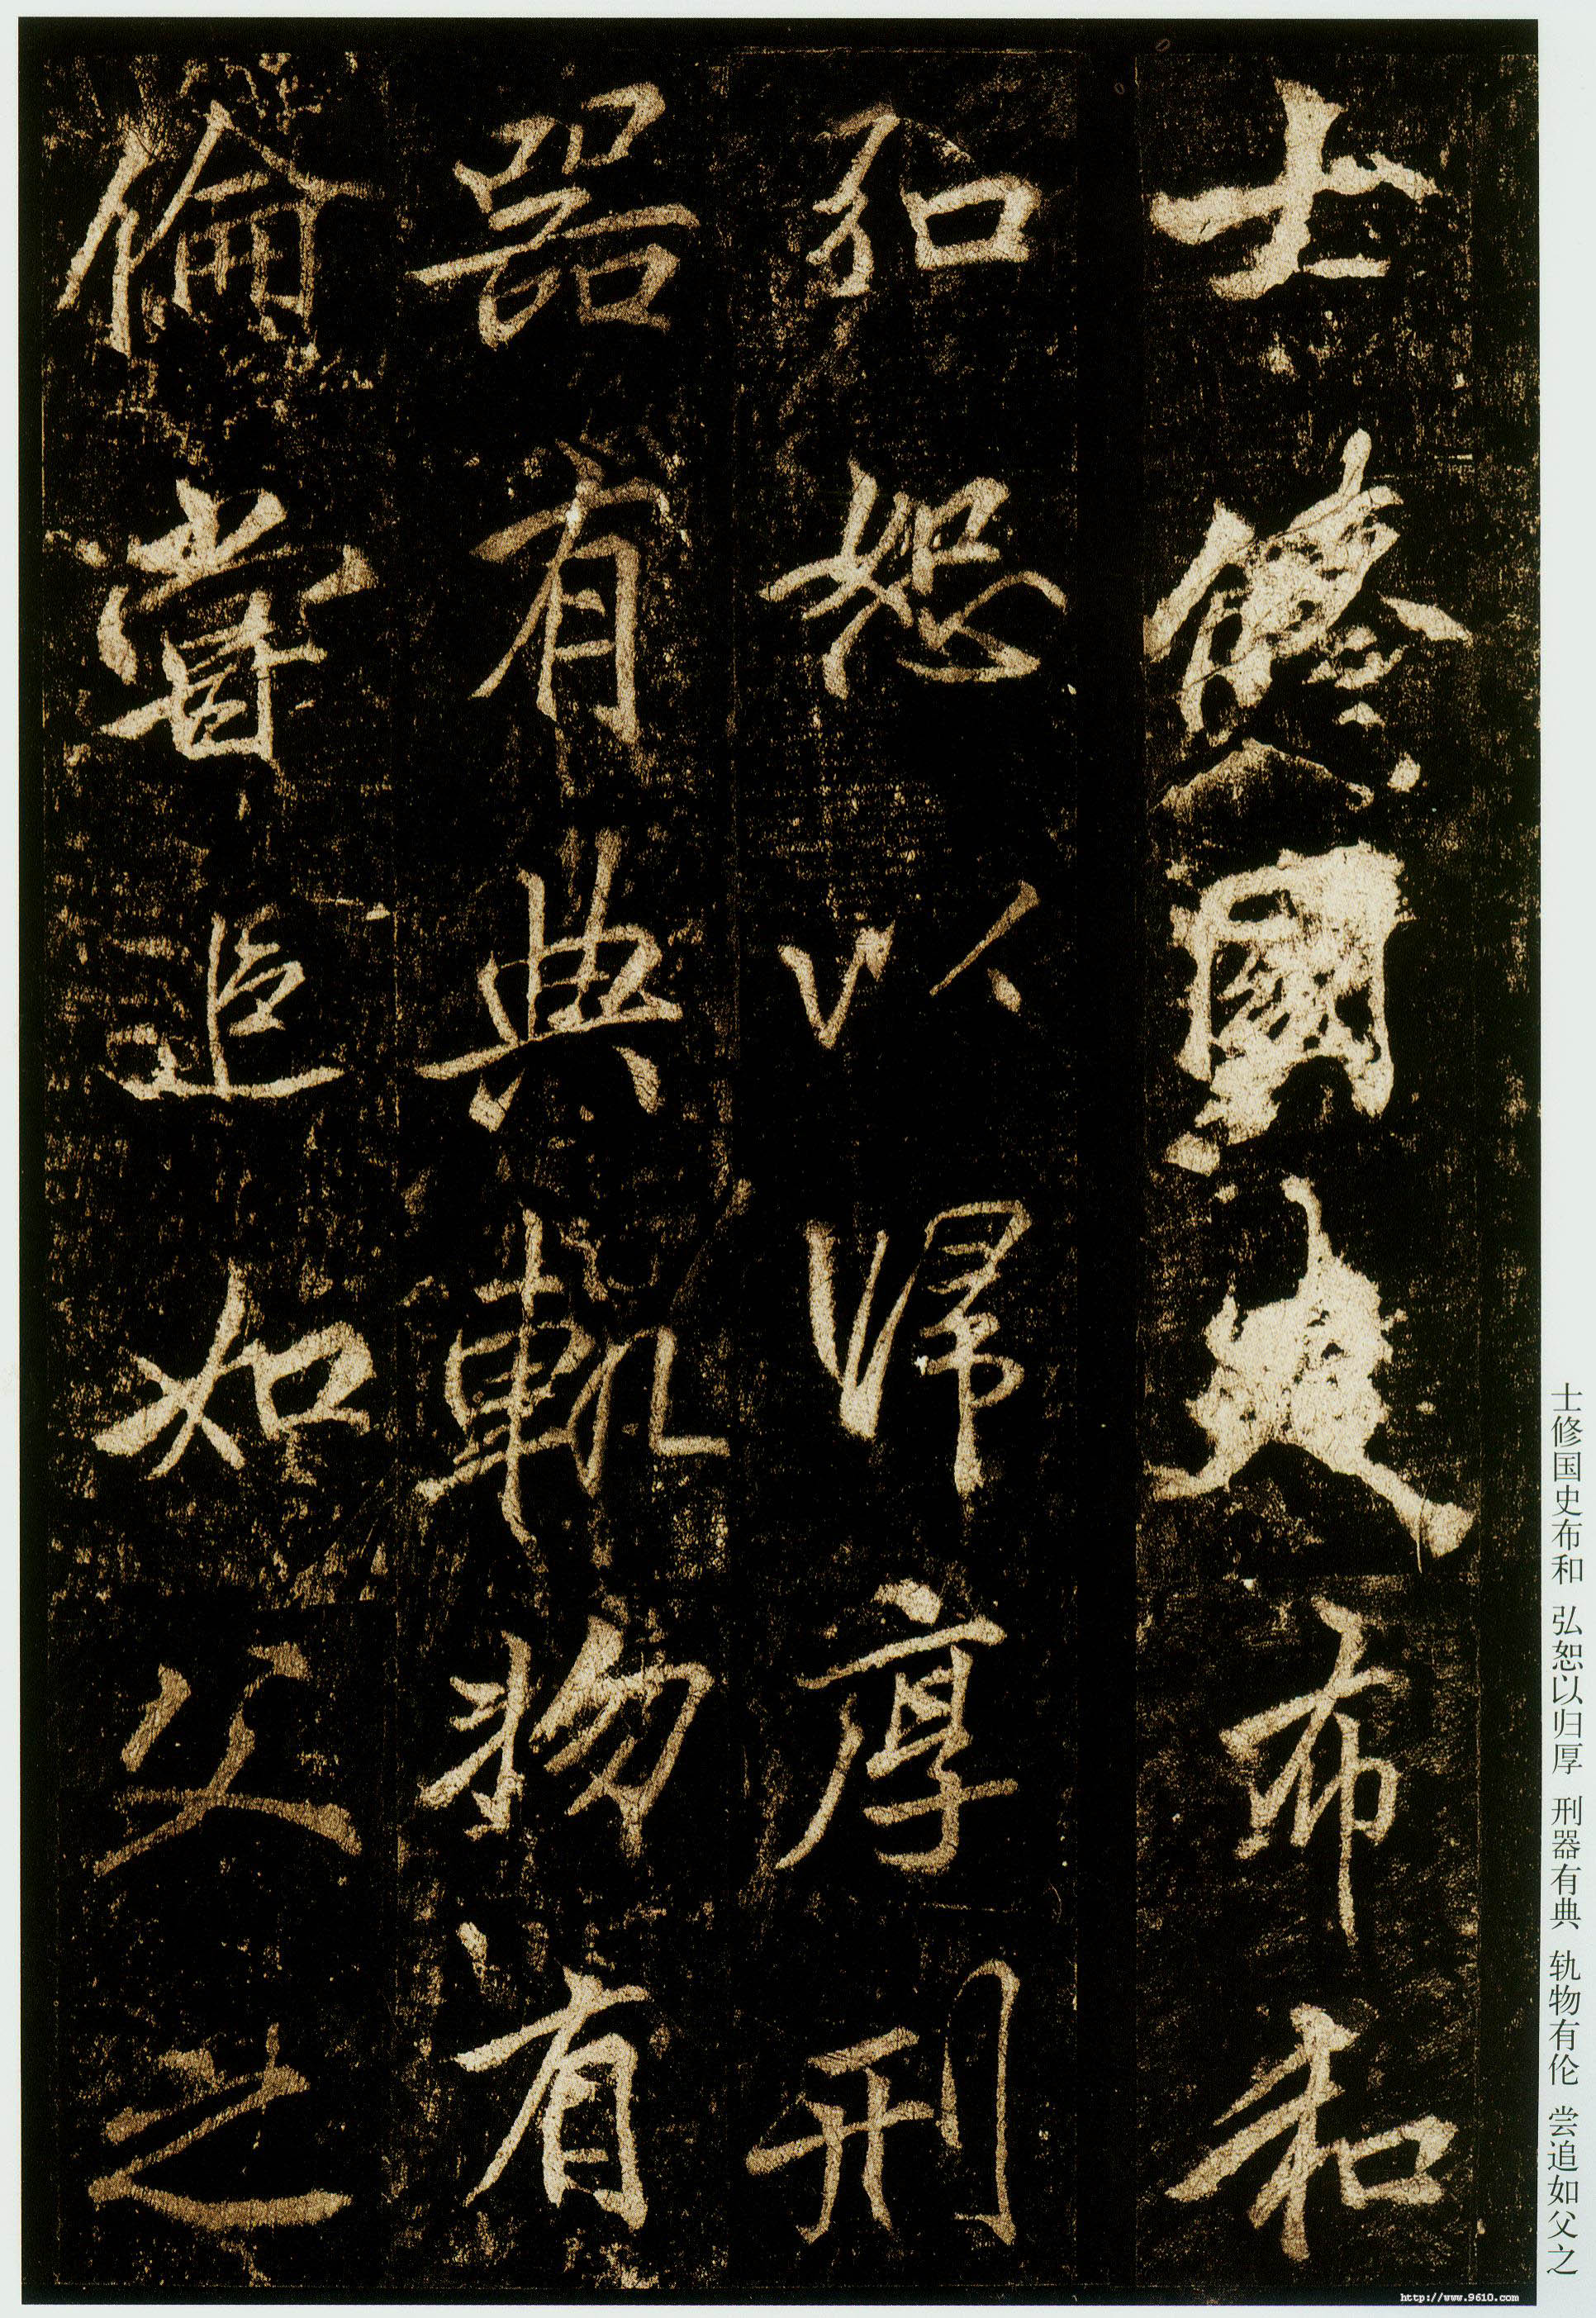 士脩國史布和
弘恕以歸厚刑
器有典軌物有
倫嘗追如父之
士修国史布和 弘恕以归厚 刑器有典 轨物有伦 尝追如父之
http://www.9610.com